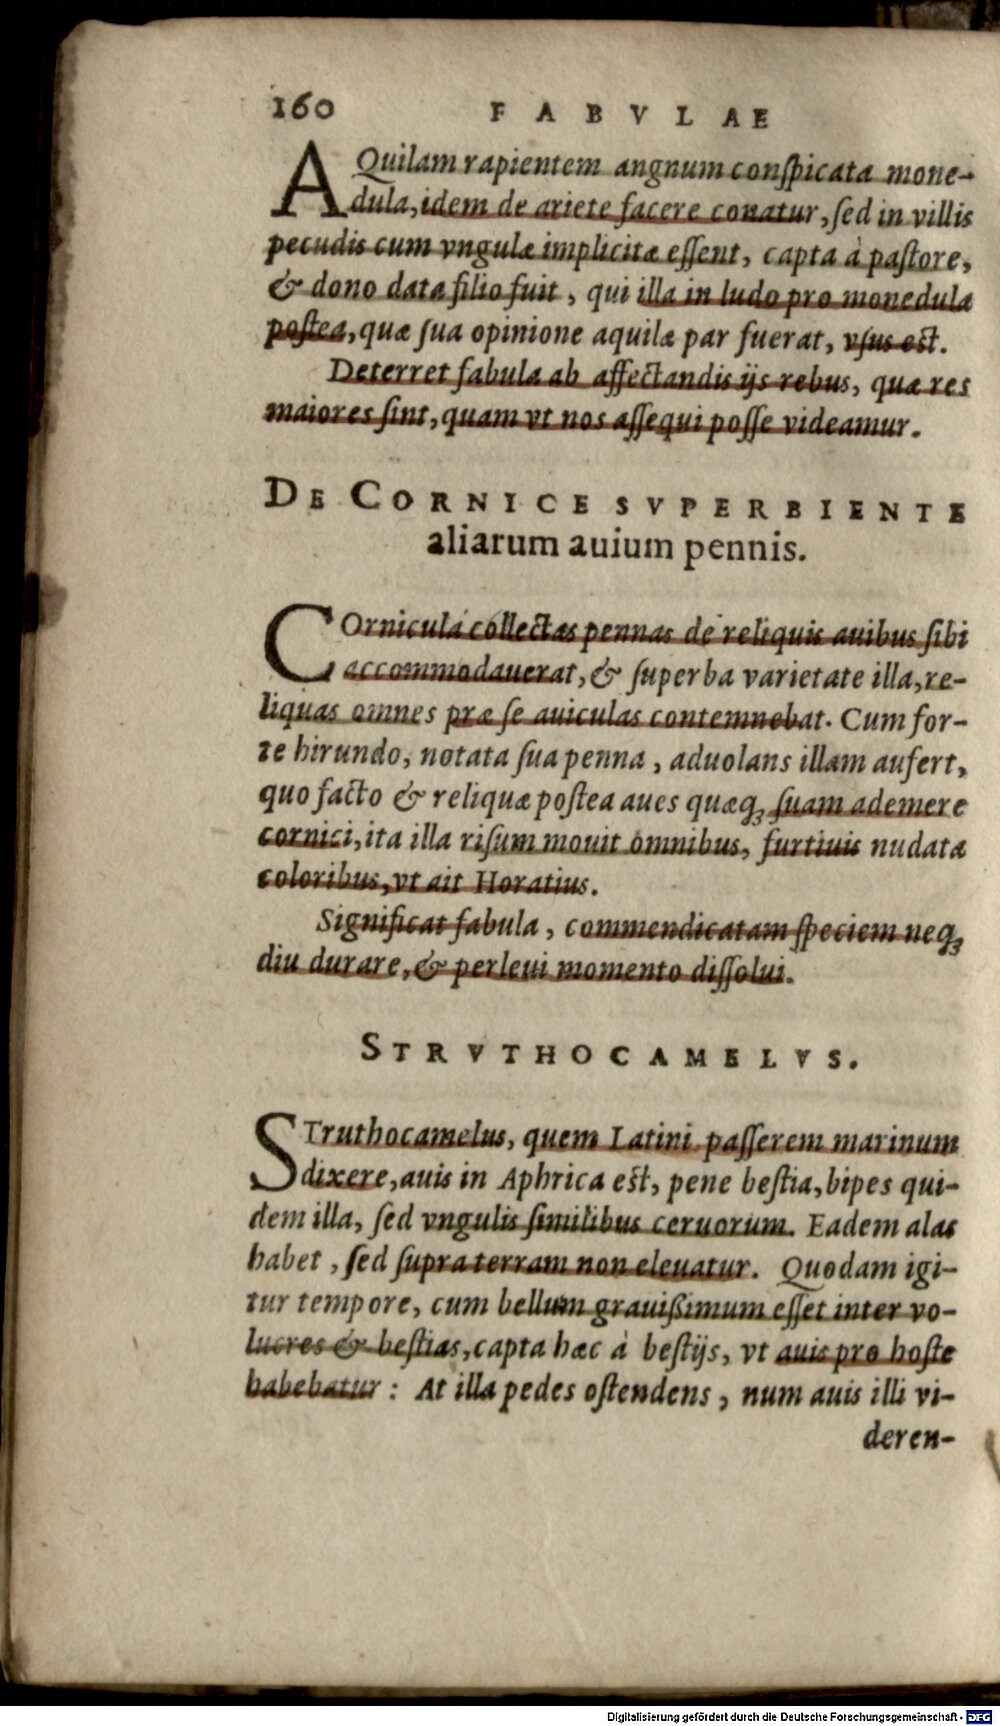 160 FABVLAE
AQuilam rapientem angnum conſpicata mone-
dula, idem de ariete facere conatur, ſed in villis
pecudis cum vngulæ implicitæ eſſent, capta à paſtore,
& dono data filio fuit, qui illa in ludo pro monedula
poſtea, quæ ſua opinione aquilæ par fuerat, vſus eſt.
Deterret fabula ab affectandis ijs rebus, quæ res
maiores ſint, quam vt nos aſſequi poſſe videamur.
DE CORNICE SVPERBIENTE
aliarum auium pennis.
COrnicula collectas pennas de reliquis auibus ſibi
accommodauerat, & ſuperba varietate illa, re-
liquas omnes præ ſe auiculas contemnebat. Cum for-
te hirundo, notata ſua penna, aduolans illam aufert,
quo facto & reliquæ poſtea aues quæqꝫ ſuam ademere
cornici, ita illa riſum mouit omnibus, furtiuis nudata
coloribus, vt ait Horatius.
Significat fabula, commendicatam ſpeciem neqꝫ
diu durare, & perleui momento diſſolui.
STRVTHOCAMELVS.
STruthocamelus, quem Latini paſſerem marinum
dixere, auis in Aphrica eſt, pene beſtia, bipes qui-
dem illa, ſed vngulis ſimilibus ceruorum. Eadem alas
habet, ſed ſupra terram non eleuatur. Quodam igi-
tur tempore, cum bellum grauißimum eſſet inter vo-
lucres & beſtias, capta hæc à beſtijs, vt auis pro hoſte
habebatur: At illa pedes oſtendens, num auis illi vi-
deren-
Digitalisierung gefördert durch die Deutsche Forschungsgemeinschaft - DFG